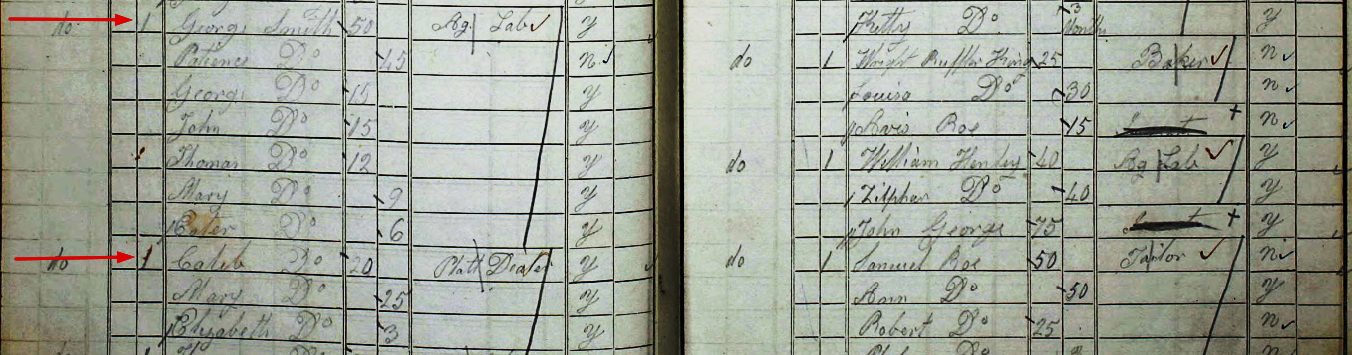 do 1 George Smith 50 Ag Lab y
Patience Do 45 n
George Do 15 y
John Do 15 y
Thomas Do 12 y
Mary Do 9 y
Do 6 y
do 1 Caleb Do 20 Platt Dealer y
Mary Do 25 y
Elizabeth Do 3 y
Kitty Do 3 Months y
do 1 Wright Ruffle King 25 Baker n
Louisa Do 30 n
Roe 15 n
do 1 William Henley 40 Ag Lab y
Zilphar Do 40 y
John George 75 y
do 1 Samuel Roe 50 Tailor n
Ann Do 50 y
Robert Do 25 n